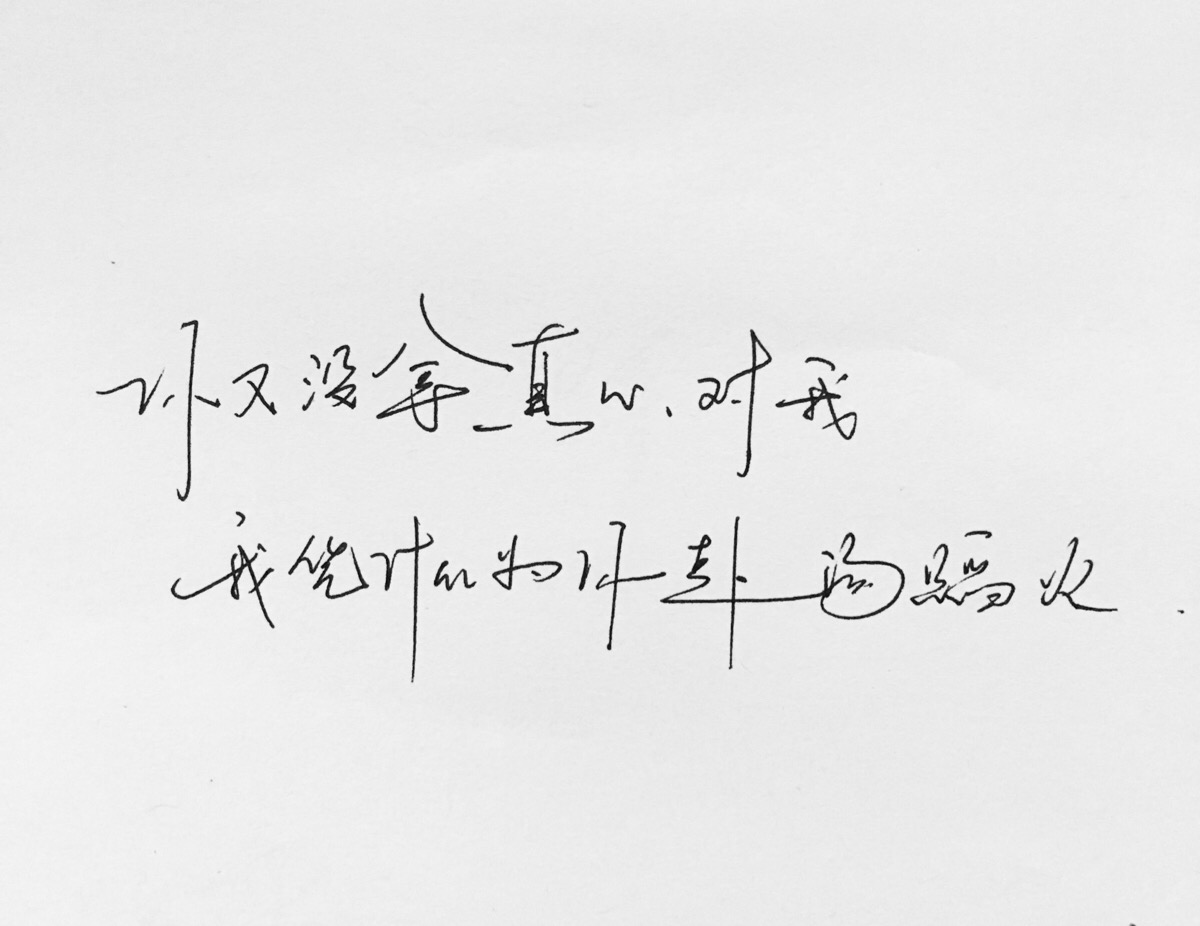 你又没拿真心对我
我凭什么为你赴汤蹈火